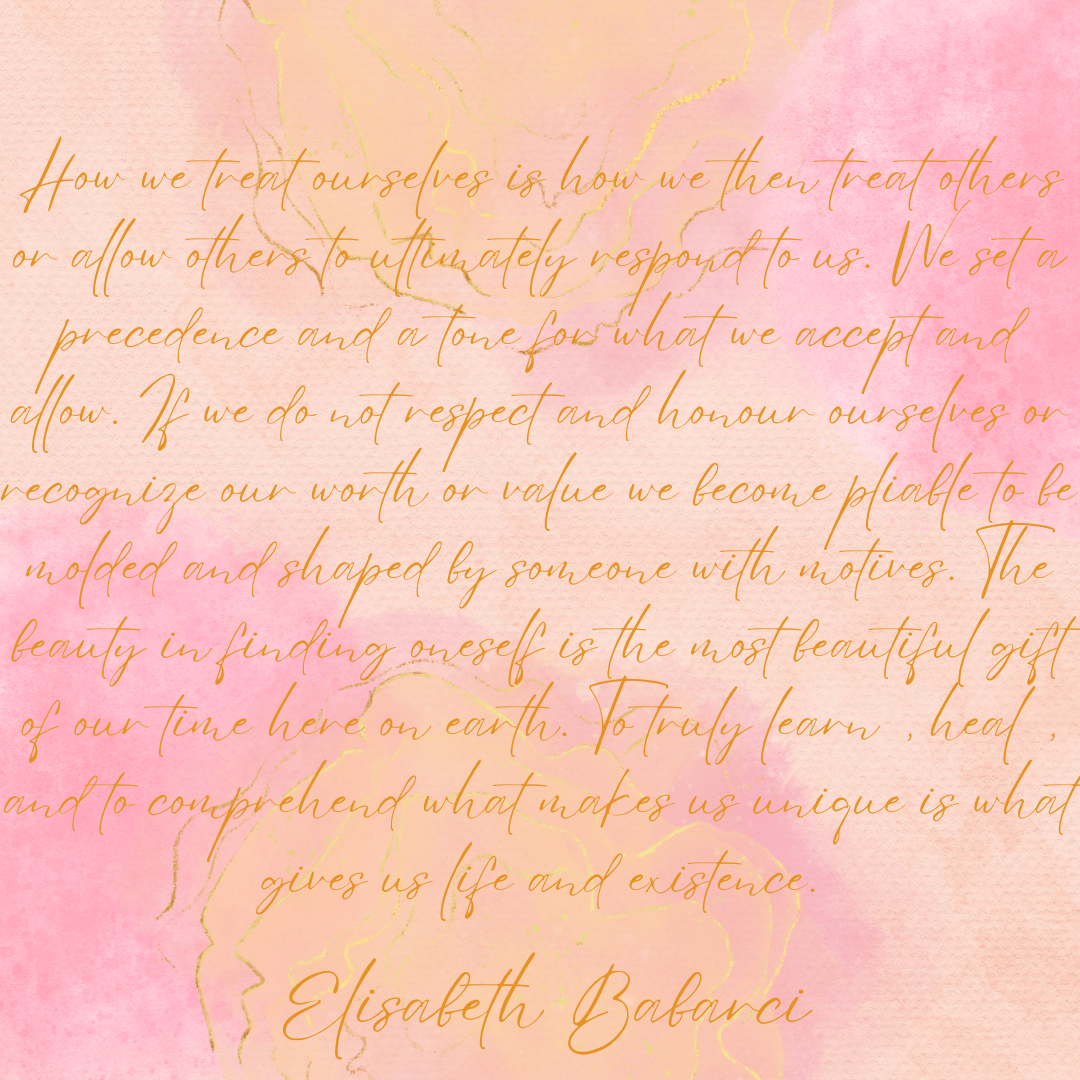 How we treat ourselves is how we then treat others
or allow others to ultimately respond to us. We set a
precedence and a tone for what we accept and
allow. If we do not respect and honour ourselves or
recognize our worth or value we become pliable to be
molded and shaped by someone with motives. The
beauty in finding oneself is the most beautiful gift
of our time here on earth. To truly learn , heal ,
and to comprehend what makes us unique is what
gives us life and existence.
Elisabeth Babarci